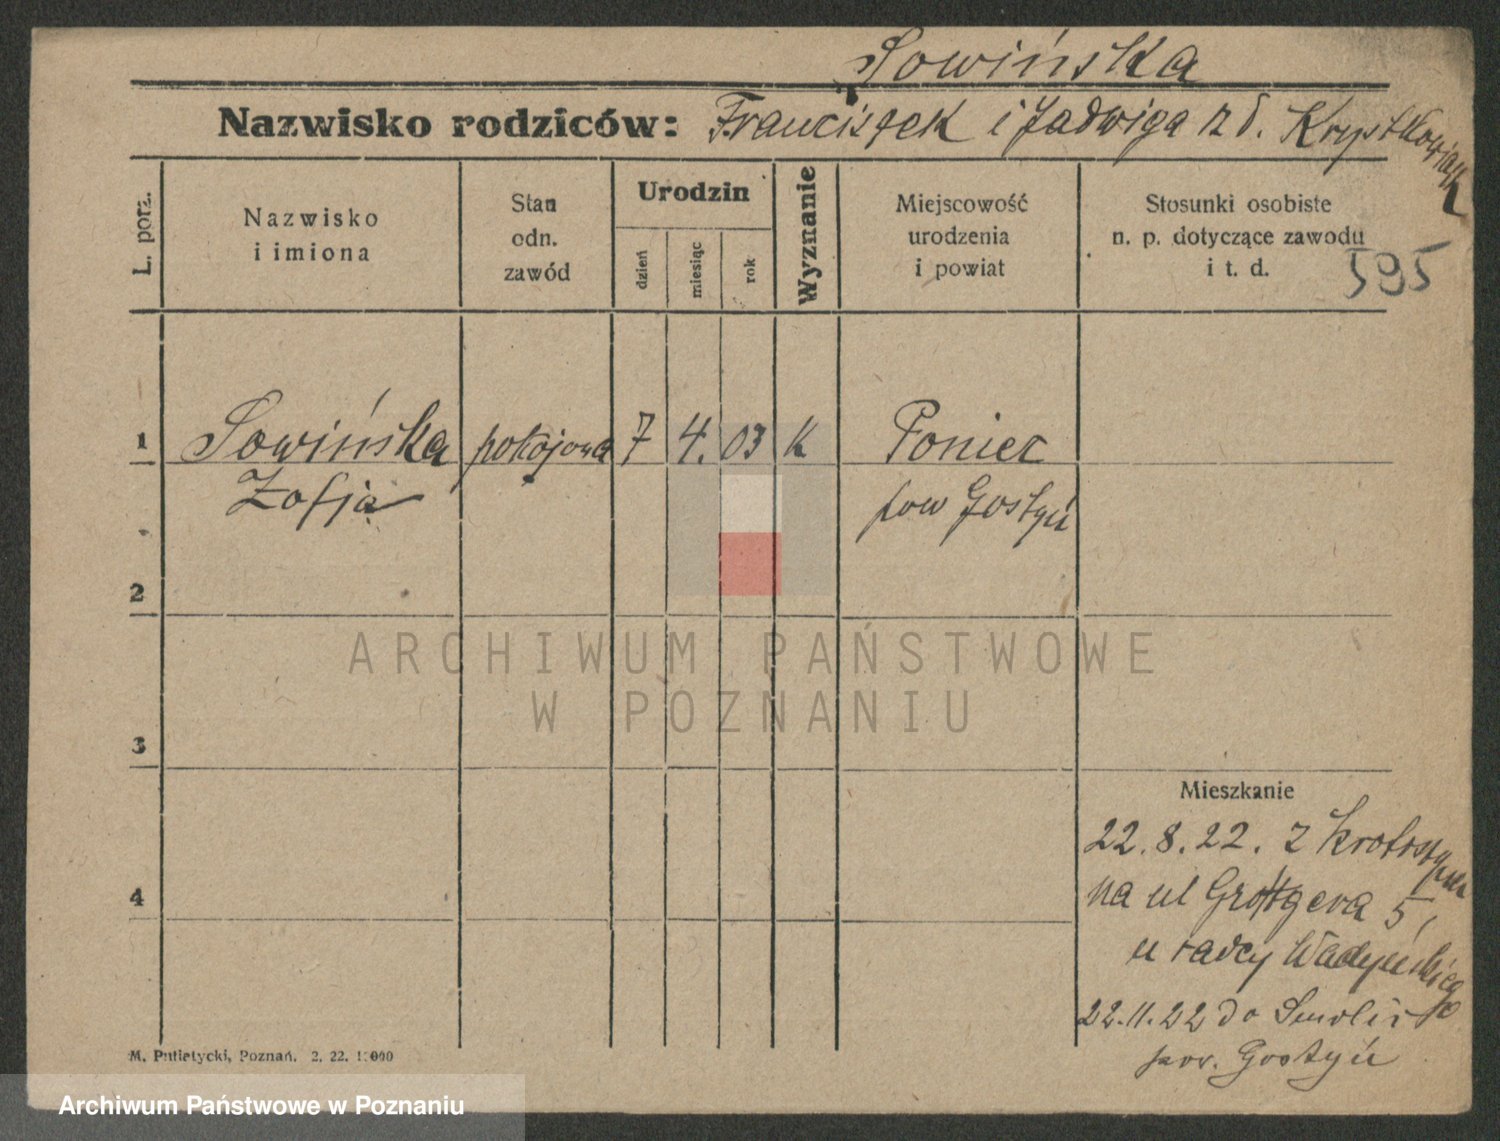 Sowińska
Nazwisko rodziców: Franciszek i Jadwiga z d. Krystkowiak
L. porz.
Nazwisko
i imiona
Stan
odn.
zawód
Urodzin
dzień
miesiąc
rok
Wyznanie
Miejscowość
urodzenia
i powiat
Stosunki osobiste
n. p. dotyczące zawodu
i t. d.
595
1 Sowińska pokojowa 7 4. 03 k Poniec
Zofja pow Gostyń
2
ARCHIWUM PAŃSTWOWE
W POZNANIU
3
Mieszkanie
22.8.22. z Krotoszyna
4
na ul Grottgera 5,
u radcy
22.11.22 do
pow. Gostyń
M. Putiatycki, Poznań. 2. 22. 1
Archiwum Państwowe w Poznaniu